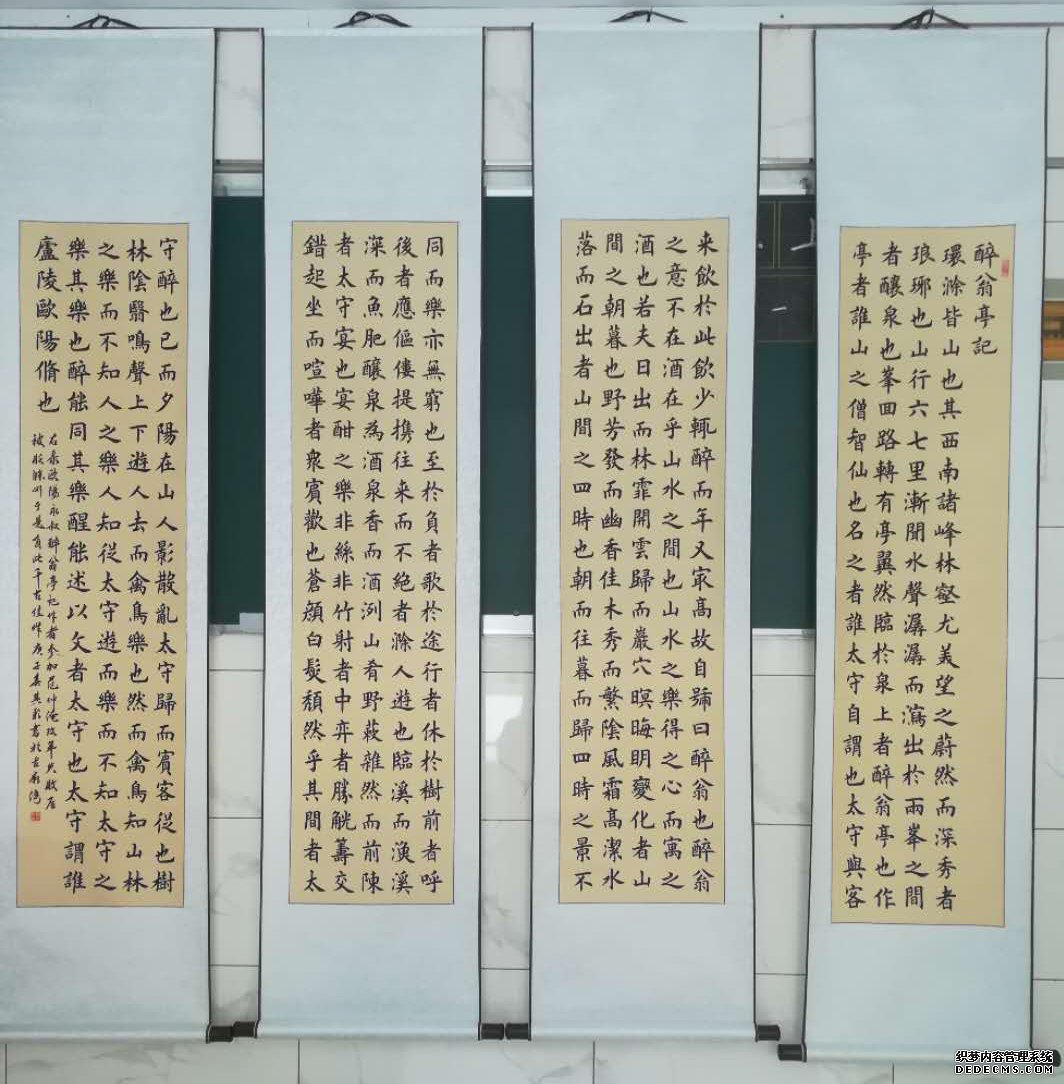 醉翁亭記
環滁皆山也其西南諸峰林壑尤美望之蔚然而深秀者
琅琊也山行六七里漸聞水聲潺潺而瀉出於兩峯之間
者釀泉也峯回路轉有亭翼然臨於泉上者醉翁亭也作
亭者誰山之僧智仙也名之者誰太守自謂也太守與客
来飲於此飲少輒醉而年又冣髙故自號曰醉翁也醉翁
之意不在酒在乎山水之間也山水之樂得之心而寓之
酒也若夫日出而林霏開雲歸而巖穴暝晦明變化者山
間之朝暮也野芳發而幽香佳木秀而繁陰風霜髙潔水
落而石出者山間之四時也朝而往暮而歸四時之景不
同而樂亦無窮也至於負者歌於途行者休於樹前者呼
後者應傴僂提携往来而不絶者滁人遊也臨溪而漁溪
深而魚肥釀泉為酒泉香而酒洌山肴野蔌雜然而前陳
者太守宴也宴酣之樂非絲非竹射者中弈者勝觥籌交
錯起坐而喧嘩者衆賓歡也蒼顔白髮頹然乎其間者太
守醉也已而夕陽在山人影散亂太守歸而賓客從也樹
林陰翳鳴聲上下遊人去而禽鳥樂也然而禽鳥知山林
之樂而不知人之樂人知從太守遊而樂而不知太守之
樂其樂也醉能同其樂醒能述以文者太守也太守謂誰
廬陵歐陽脩也
右录歐陽永叔醉翁亭記作者参加范仲淹改革失敗后
被貶滁州于是有此千古佳作庚子
织梦内容管理系统
DEDECMS.COM